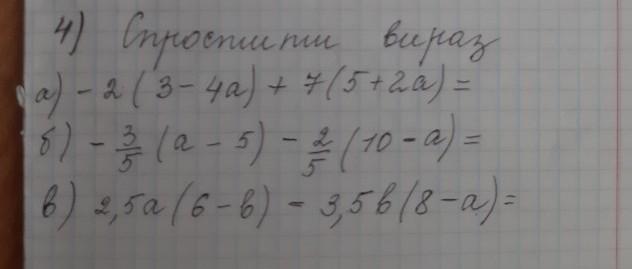 4) Спростити вираз
а) - 2 ( 3 - 4а) + 7(5+2а) =
б) - 3/5 (а - 5) - 2/5 (10 - а) =
в) 2,5а (6 - в) - 3,5в (8 - а) =